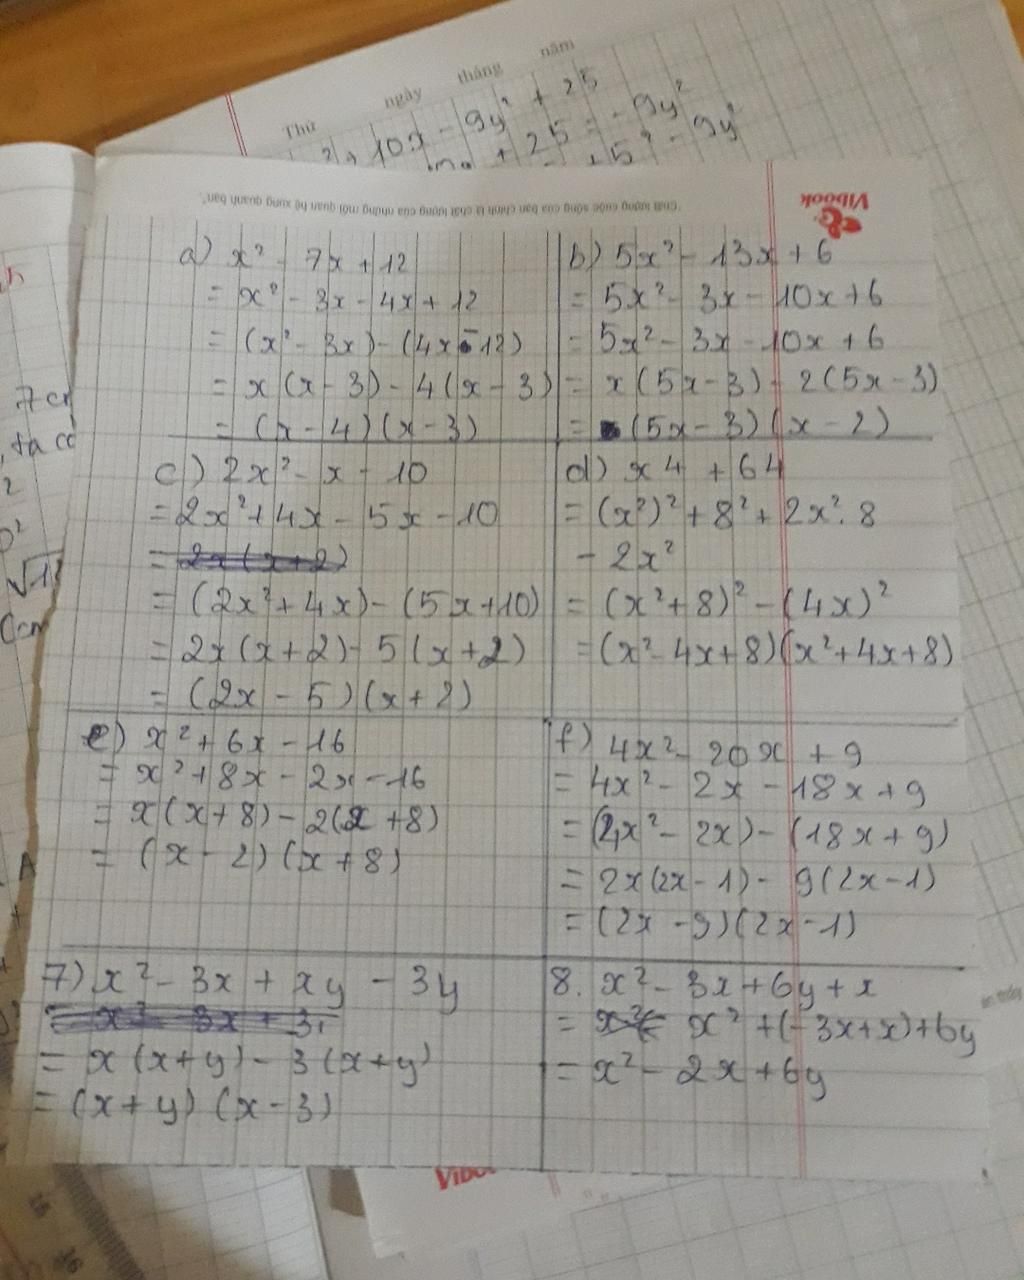 năm
tháng
ngày
Thứ
10x - 9y² + 25
+ 25 = - 9y²
+ 5² - 9y²
"Chất lượng cuộc sống của bạn chính là chất lượng của những mối quan hệ xung quanh bạn".
Vibook
a) x² - 7x + 12
= x² - 3x - 4x + 12
= (x² - 3x) - (4x - 12)
= x(x - 3) - 4(x - 3)
= (x - 4)(x - 3)
b) 5x² - 13x + 6
= 5x² - 3x - 10x + 6
= 5x² - 3x - 10x + 6
= x(5x - 3) - 2(5x - 3)
= (5x - 3)(x - 2)
c) 2x² - x - 10
= 2x² + 4x - 5x - 10
= 2x(x + 2)
= (2x² + 4x) - (5x + 10)
= 2x(x + 2) - 5(x + 2)
= (2x - 5)(x + 2)
d) x4 + 64
= (x²)² + 8² + 2x². 8
- 2x²
= (x² + 8)² - (4x)²
= (x² - 4x + 8)(x² + 4x + 8)
e) x² + 6x - 16
= x² + 8x - 2x - 16
= x(x + 8) - 2(x + 8)
= (x - 2)(x + 8)
f) 4x² - 20x + 9
= 4x² - 2x - 18x + 9
= (4x² - 2x) - (18x + 9)
= 2x(2x - 1) - 9(2x - 1)
= (2x - 9)(2x - 1)
7) x² - 3x + xy - 3y
= x² - 3x + 3
= x(x + y) - 3(x + y)
= (x + y)(x - 3)
8. x² - 3x + 6y + x
= x² + (-3x + x) + 6y
= x² - 2x + 6y
7 cm
ta có
A